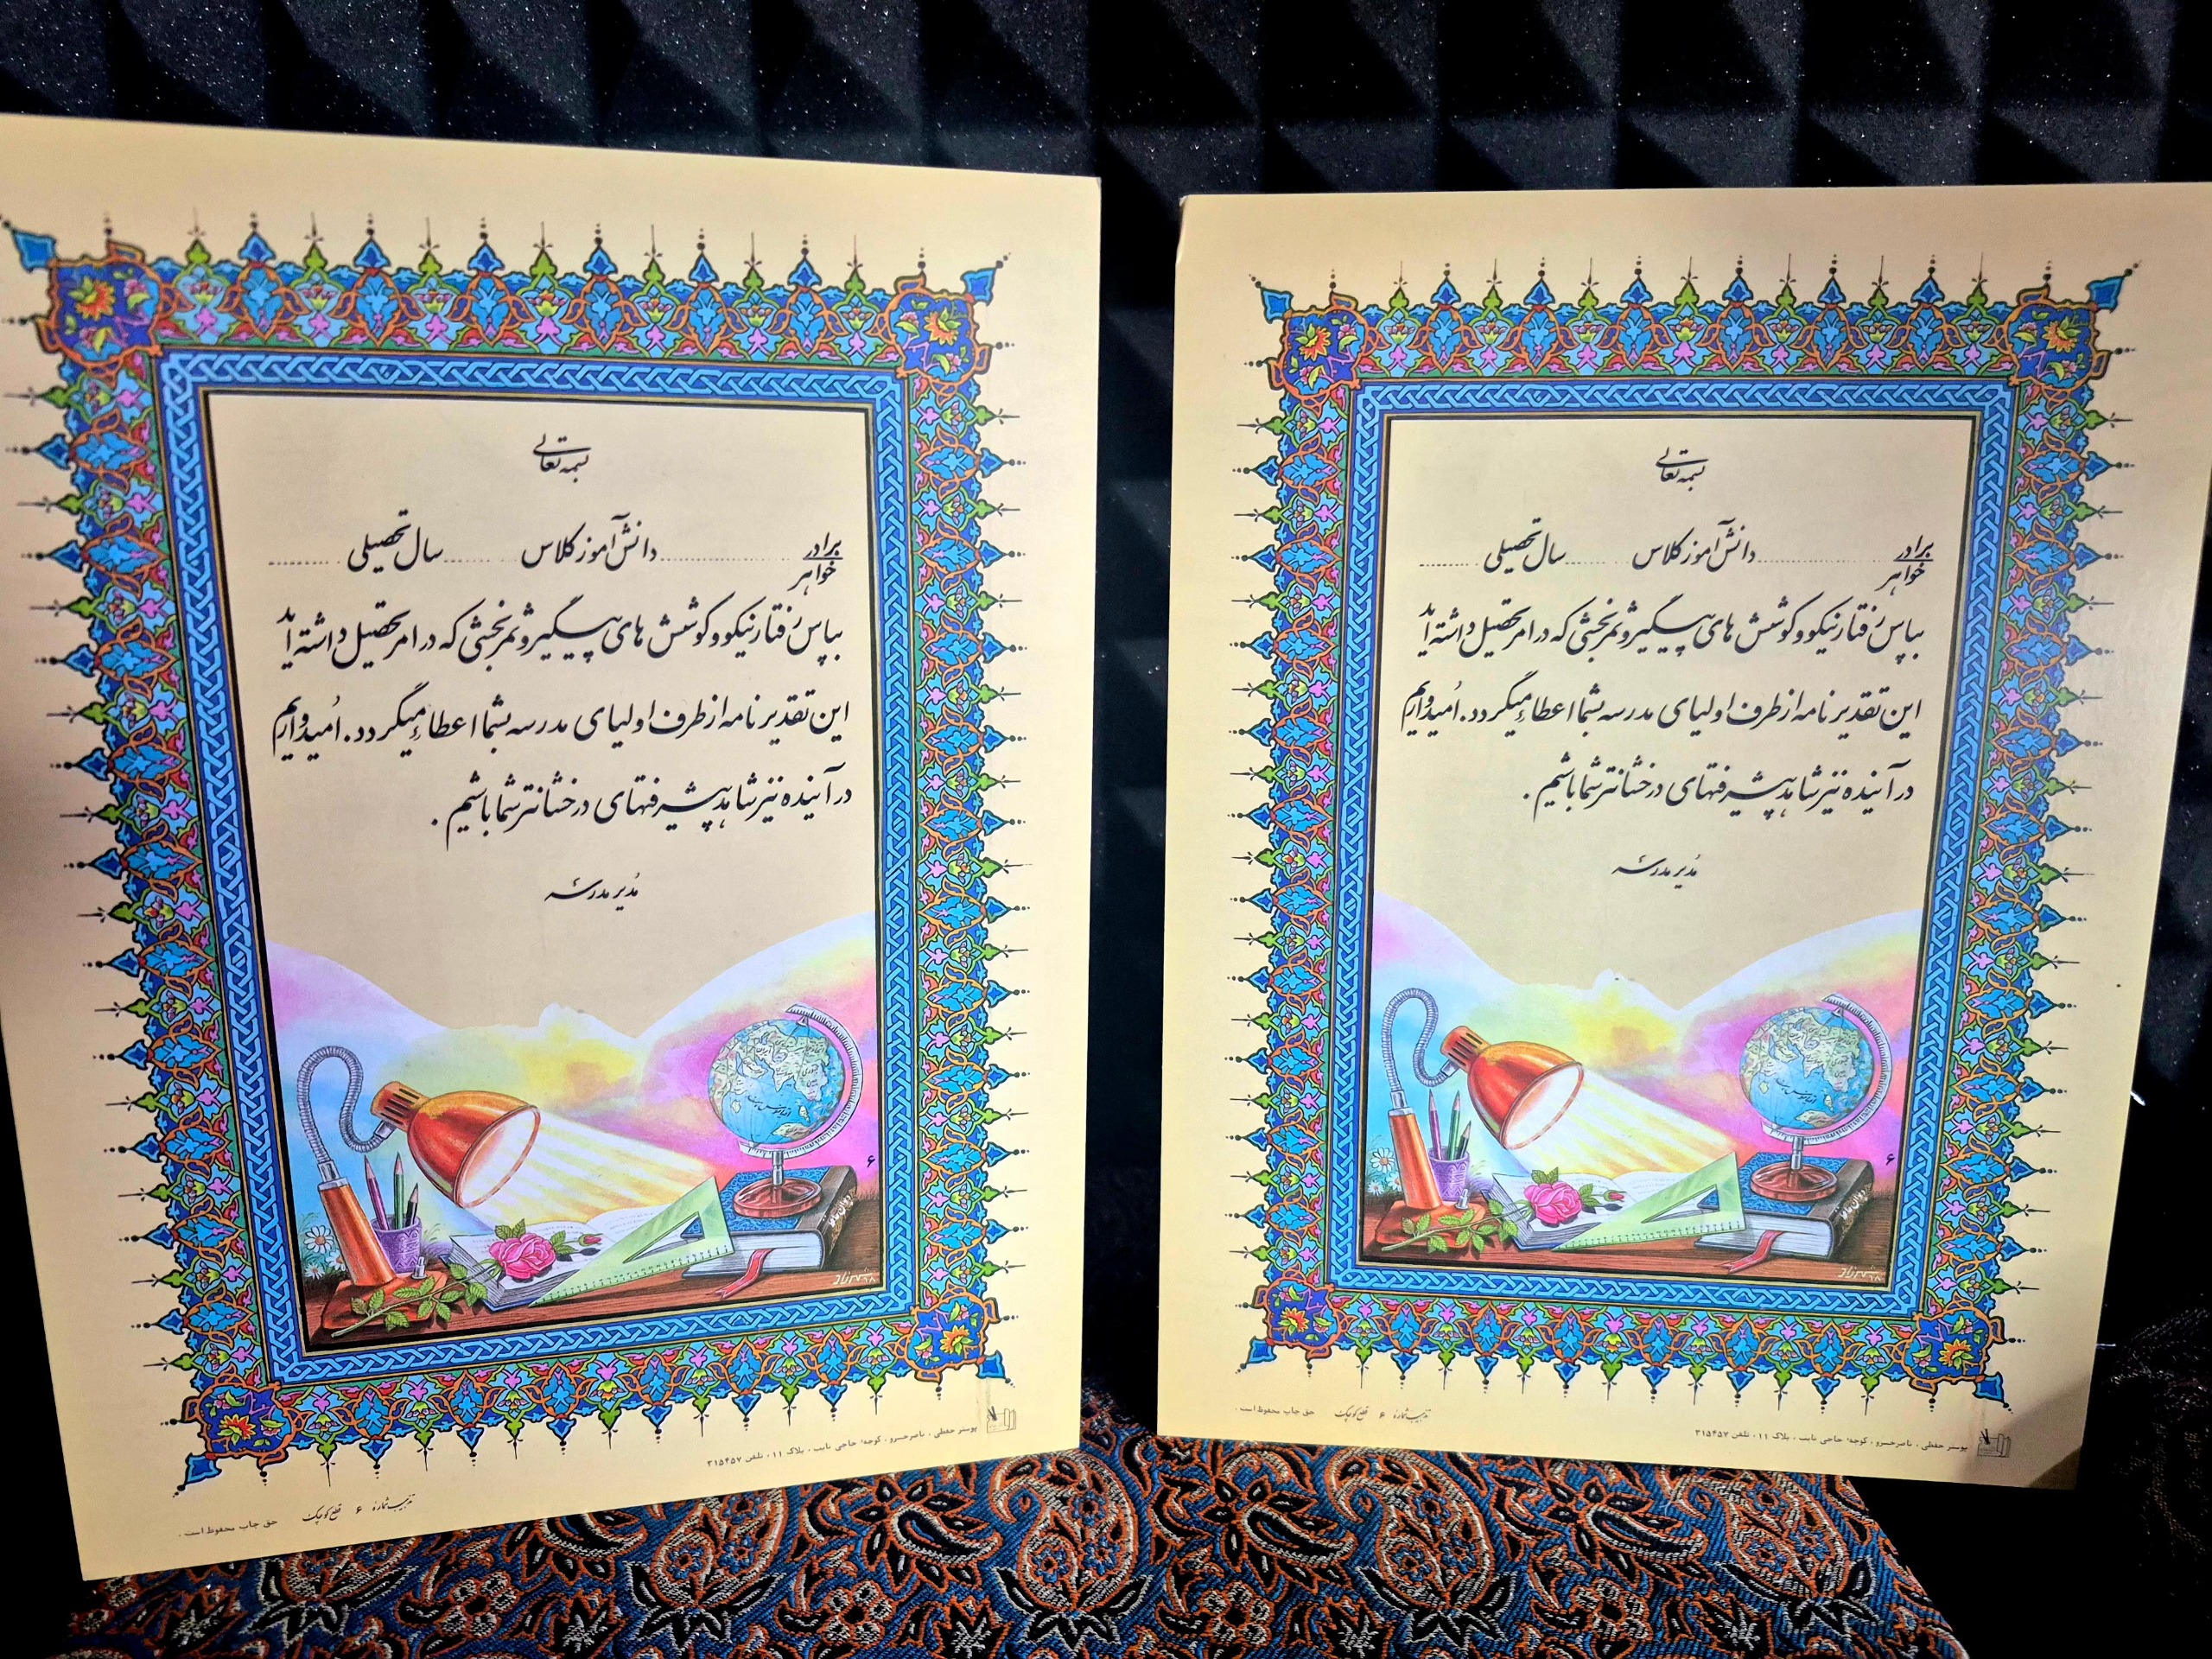 بسمه تعالی
برادر
خواهر
دانش آموز کلاس
سال تحصیلی
بپاس رفتار نیکو و کوشش های پیگیر و ثمربخشی که در امر تحصیل داشته اید
این تقدیر نامه از طرف اولیای مدرسه بشما اعطاء میگردد. اُمیدواریم
در آینده نیز شاهد پیشرفتهای درخشانتر شما باشیم.
مُدیر مدرسه
۶
پوستر حفظی ، ناصرخسرو ، کوچه حاجی نایب ، پلاک ۱۱ ، تلفن ۳۱۵۴۵۷
تذهیب شماره ۶ قطع کوچک حق چاپ محفوظ است .
بسمه تعالی
برادر
خواهر
دانش آموز کلاس
سال تحصیلی
بپاس رفتار نیکو و کوشش های پیگیر و ثمربخشی که در امر تحصیل داشته اید
این تقدیر نامه از طرف اولیای مدرسه بشما اعطاء میگردد. اُمیدواریم
در آینده نیز شاهد پیشرفتهای درخشانتر شما باشیم.
مُدیر مدرسه
۶
تذهیب شماره ۶ قطع کوچک حق چاپ محفوظ است .
پوستر حفظی ، ناصرخسرو ، کوچه حاجی نایب ، پلاک ۱۱ ، تلفن ۳۱۵۴۵۷